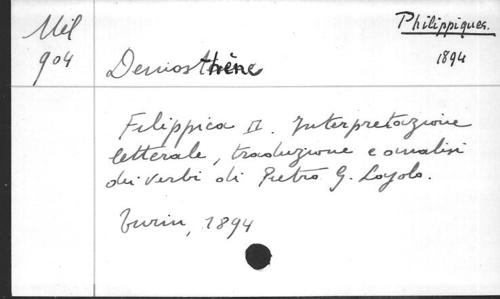 Mél
904
Philippiques.
1894
Demosthène
Filippica II. Interpretazione
letterale, traduzione e analisi
dei verbi di Pietro G. Loyolo.
Turin, 1894